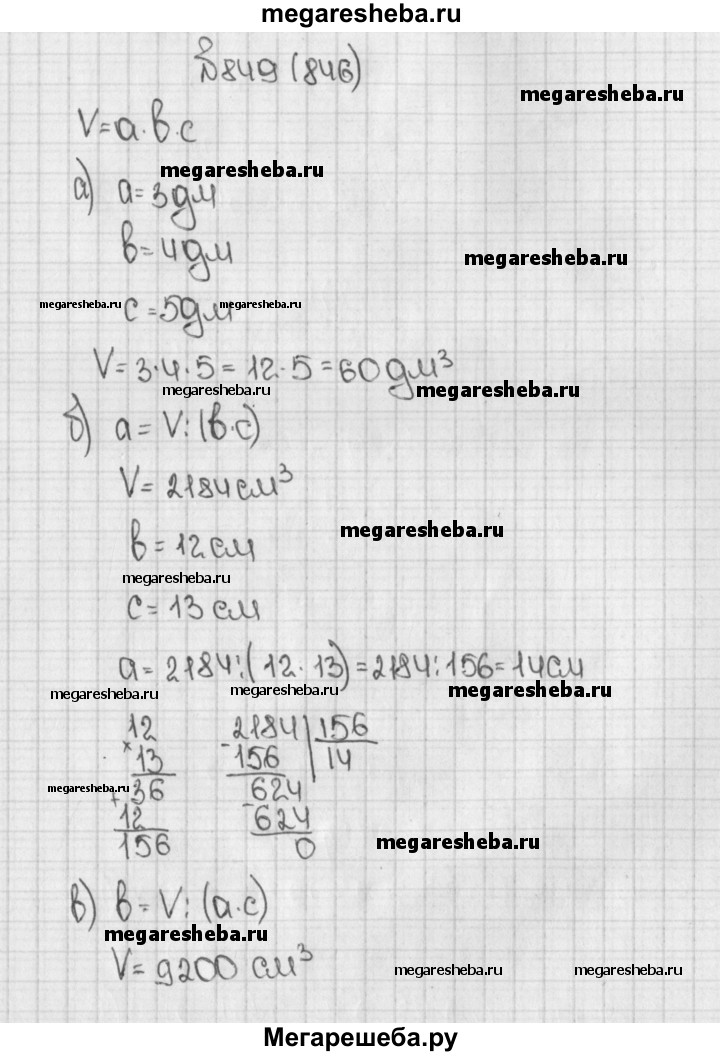 megaresheba.ru
№849 (846)
megaresheba.ru
V=a·b·c
megaresheba.ru
а) a=3дм
b=4дм
megaresheba.ru
megaresheba.ru c=5дм megaresheba.ru
V=3·4·5=12·5=60дм³
megaresheba.ru megaresheba.ru
б) a=V:(b·c)
V=2184см³
megaresheba.ru
b=12см
megaresheba.ru
c=13см
a=2184:(12·13)=2184:156=14см
megaresheba.ru megaresheba.ru megaresheba.ru
12 2184|156
×13 -156 14
megaresheba.ru +36 624
12 -624
156 0
megaresheba.ru
в) b=V:(a·c)
megaresheba.ru
V=9200 см³
megaresheba.ru megaresheba.ru
Мегарешеба.ру